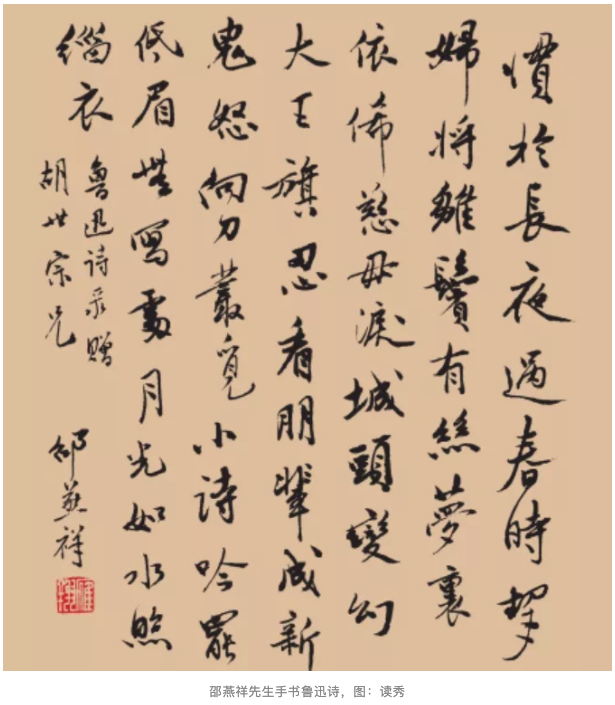 慣於長夜過春時挈
婦將雛鬢有絲夢裏
依俙慈母淚城頭變幻
大王旗忍看朋輩成新
鬼怒向刀叢覓小詩吟罷
低眉無寫處月光如水照
緇衣
魯迅詩录贈
胡世宗兄
邵燕祥
邵燕祥先生手书鲁迅诗，图：读秀